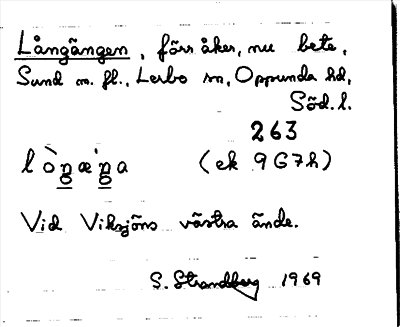 Långängen, förr åker, nu bete,
Sund m. fl., Lerbo sn, Oppunda hd,
Söd. l.
263
lòn̲gæn̲ga (ek 9G7h)
Vid Viksjöns västra ände.
S. Strandberg 1969